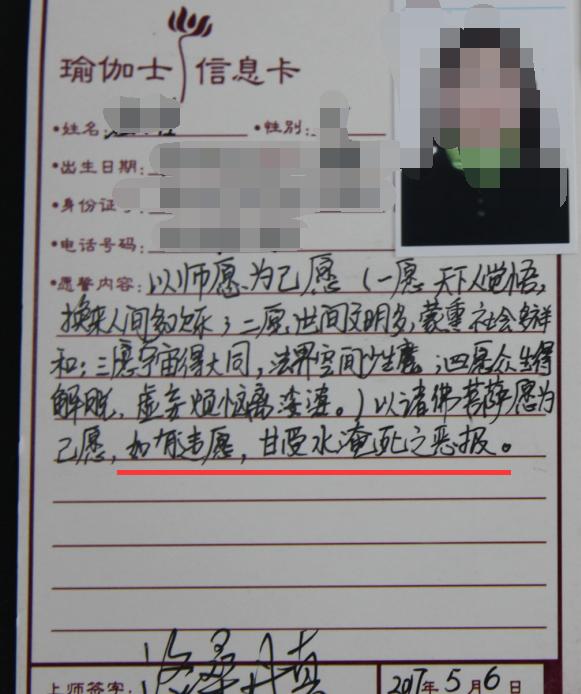 瑜伽士 信息卡
•姓名:
•性别:
•出生日期:
•身份证号
•电话号码:
•愿誓内容: 以师愿为己愿（一愿天下人觉悟，
换来人间多欢乐；二愿世间文明多，蒙熏社会多祥
和；三愿宇宙得大同，法界空间少生魔；四愿众生得
解脱，虚妄烦恼离娑婆。）以诸佛菩萨愿为
己愿，如有违愿，甘受水淹死之恶报。
上师签字:
2017年5月6日